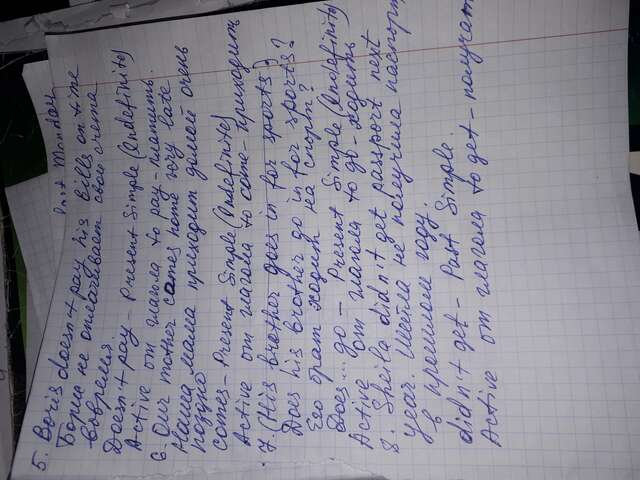 last Monday
5. Boris doesn't pay his bills on time
Борис не оплачивает свои счета
вовремя
Doesn't pay - Present Simple (Indefinity)
Active от глагола to pay - платить.
6. Our mother comes home very late
Наша мама приходит домой очень
поздно
comes - Present Simple (Indefinity)
Active от глагола to come - приходить
7. (His brother goes in for sports)
Does his brother go in for sports?
Его брат ходит на спорт?
Does ... go - Present Simple (Indefinity)
Active от глагола to go - ходить
8. Sheila didn't get passport next
year. Шейла не получила паспорт
в прошлом году.
didn't get - Past Simple.
Active от глагола to get - получать